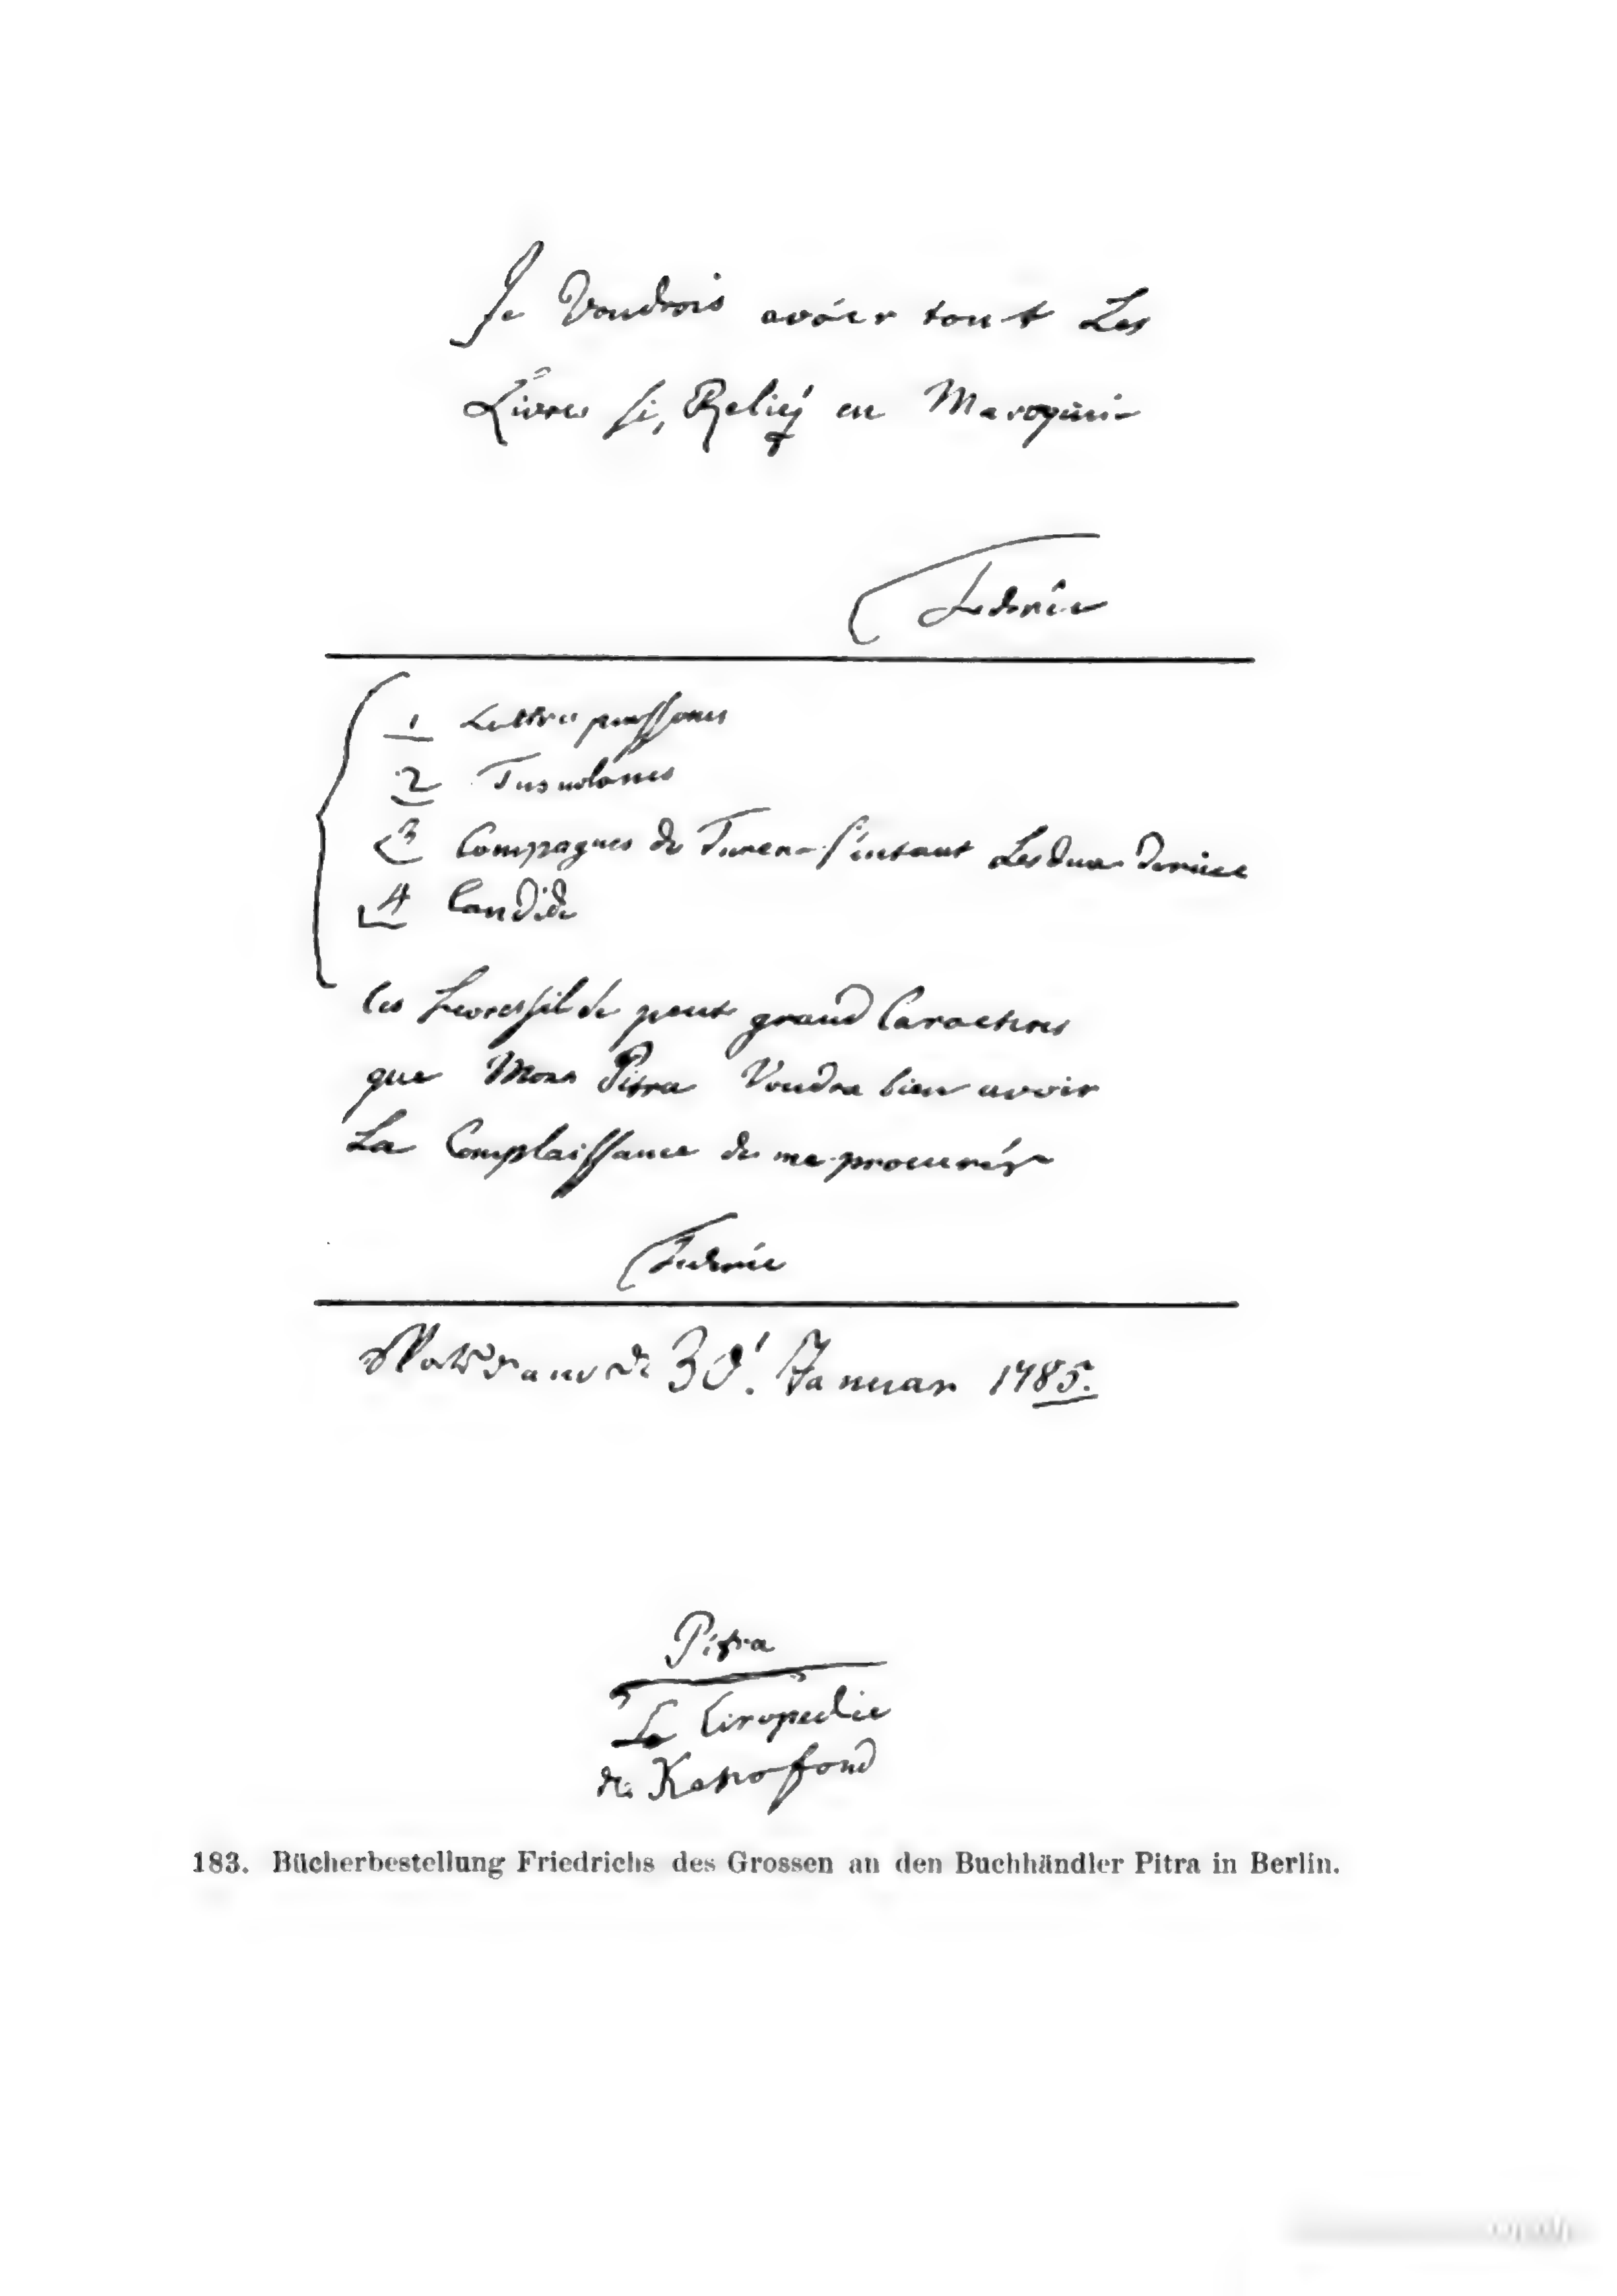 Je Voudrois avóir tout Les
Livres si, Relież en Maroquin
Federic
1 Lettres perssones
2 Tusculanes
3 Compagnes de Turene les deux
4 Candide
Ces Livres peut grand Caracteres
que Mons Pitra Voudra bien avoir
La Complaissance de me procurér
Federic
de 30! Januar 1785.
Pitra
La Ciropedie
de Kesnofond
183. Bücherbestellung Friedrichs des Grossen an den Buchhändler Pitra in Berlin.